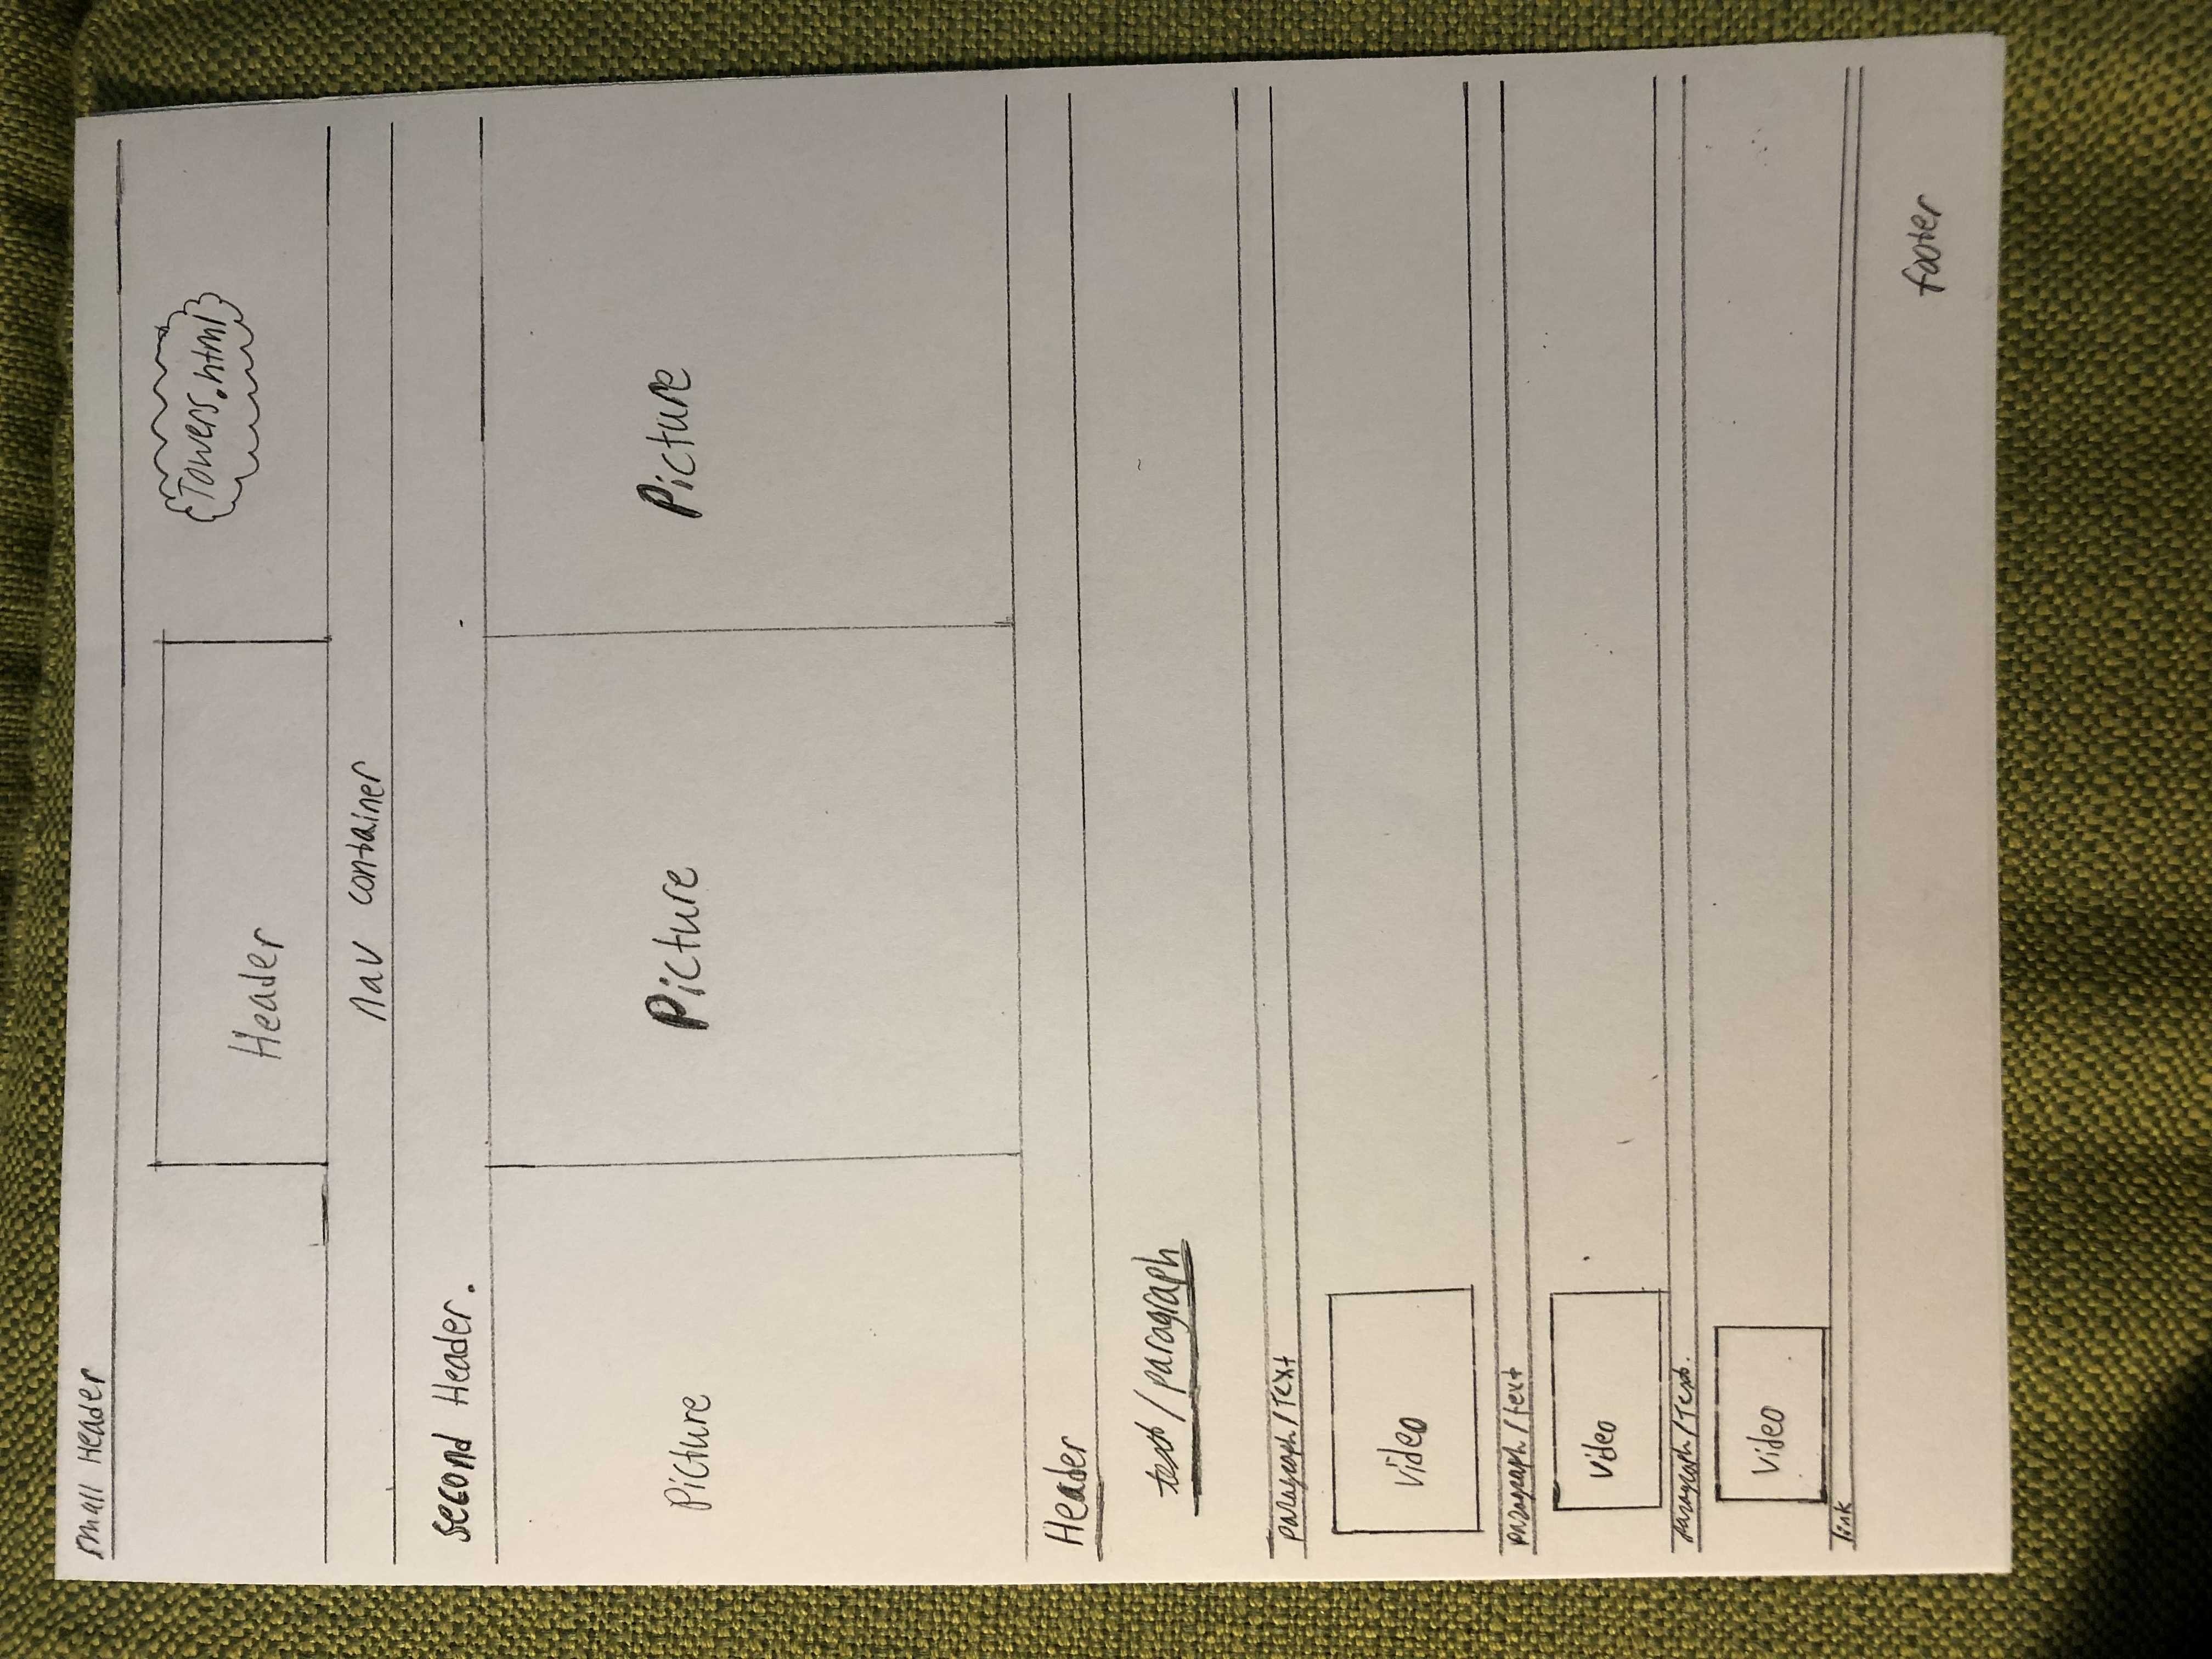 small Header
Towers.html
Header
nav container
second Header.
Picture
Picture
Picture
Header
text / paragraph
paragraph / Text
video
paragraph / text
Video
paragraph / Text.
Video
link
footer